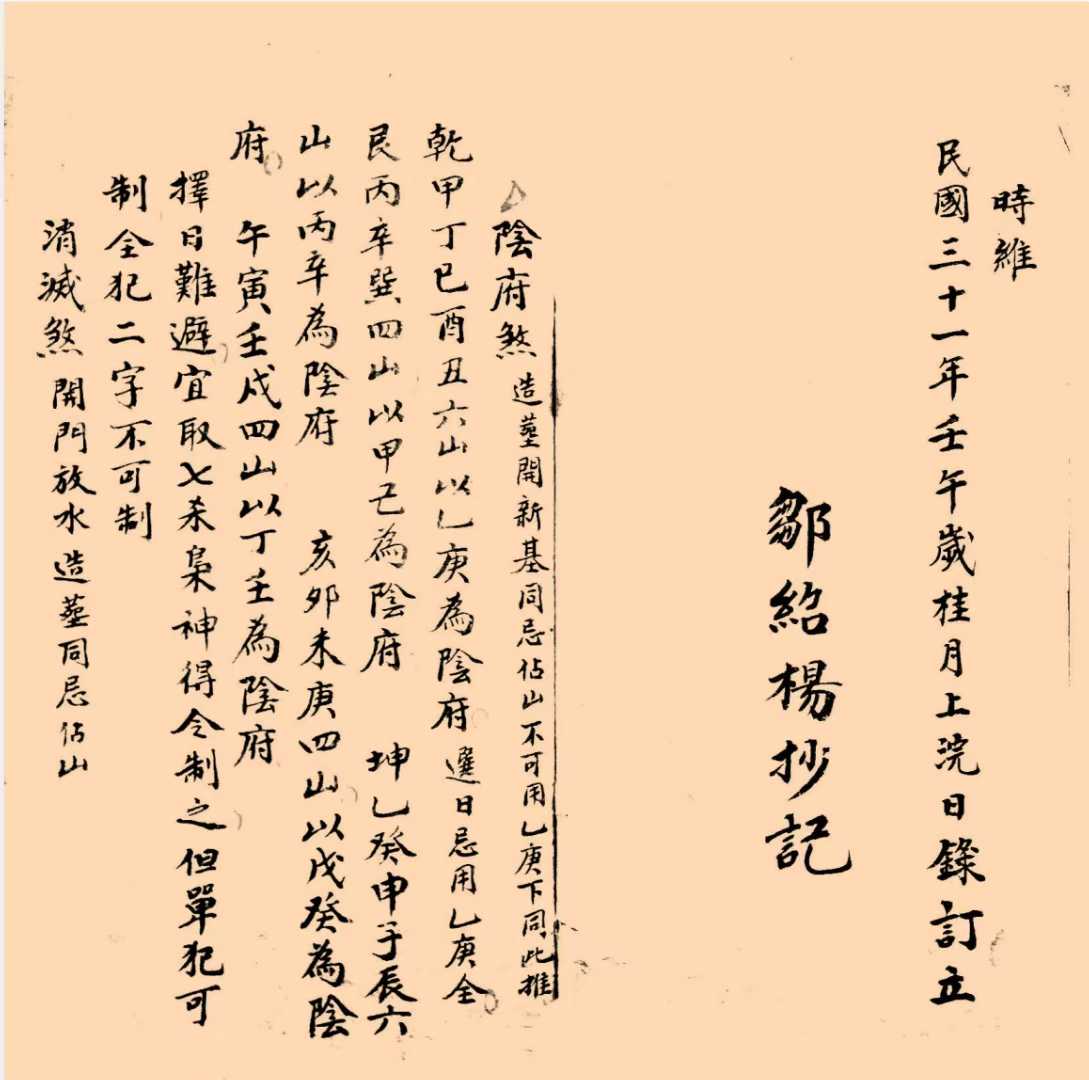 時維
民國三十一年壬午歲桂月上浣日錄訂立
鄒紹楊抄記
陰府煞 造塟開新基同忌佔山不可用乙庚下同此推
乾甲丁巳酉丑六山以乙庚為陰府 選日忌用乙庚全
艮丙辛巽四山以甲己為陰府 坤乙癸申子辰六
山以丙辛為陰府 亥卯未庚四山以戊癸為陰
府 午寅壬戌四山以丁壬為陰府
擇日難避宜取七杀梟神得令制之但單犯可
制全犯二字不可制
消滅煞 開門放水造塟同忌佔山